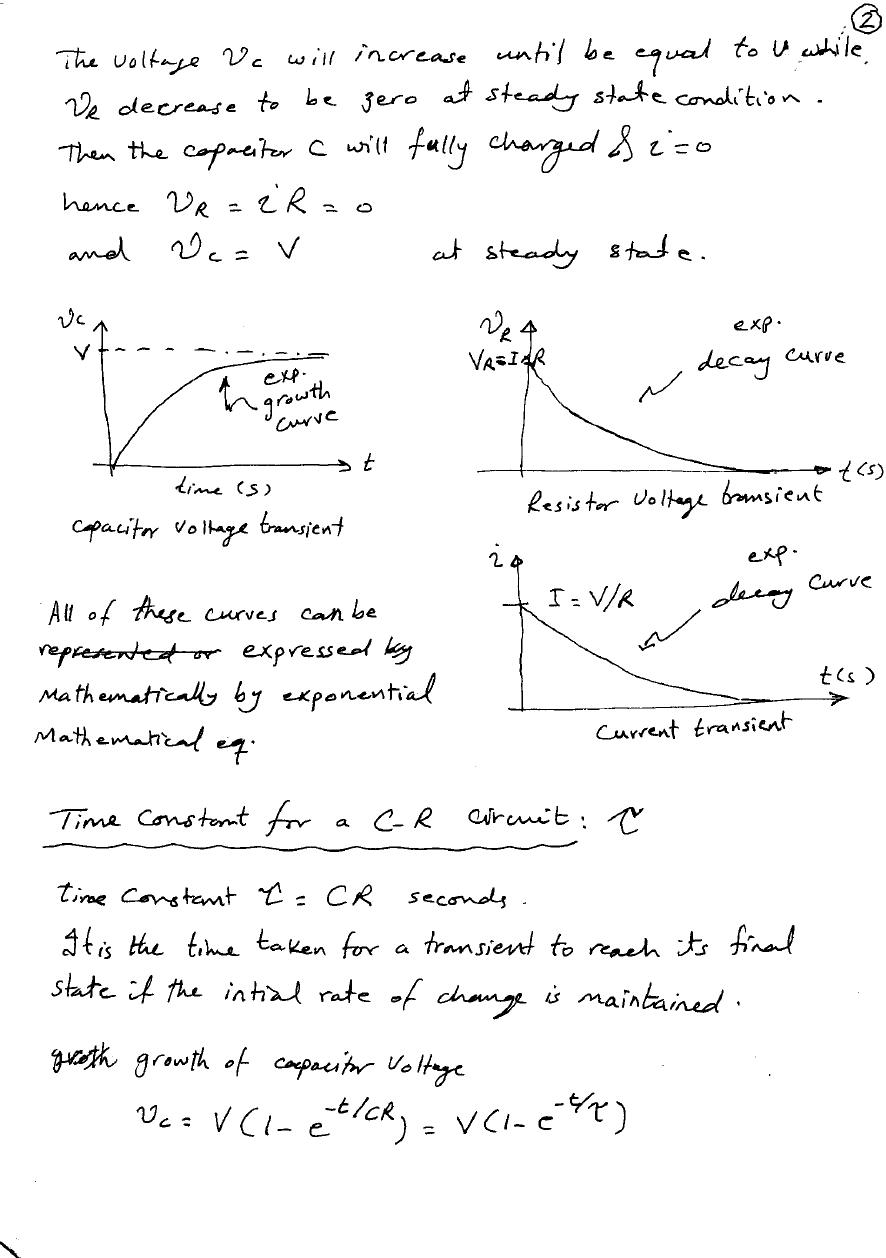 2
The voltage Vc will increase until be equal to V while,
VR decrease to be zero at steady state condition.
Then the capacitor C will fully charged & i=0
hence VR = iR = 0
and Vc = V at steady state.
Vc
V
exp.
growth
curve
t
time (s)
capacitor voltage transient
VR
VR=I*R
exp.
decay curve
t(s)
Resistor Voltage transient
i
I = V/R
exp.
decay curve
t(s)
Current transient
All of these curves can be
represented or expressed by
Mathematically by exponential
Mathematical eq.
Time Constant for a C-R circuit: τ
time constant τ = CR seconds.
It is the time taken for a transient to reach its final
state if the intial rate of change is maintained.
groth growth of capacitor Voltage
Vc = V(1-e^-t/CR) = V(1-e^-t/τ)